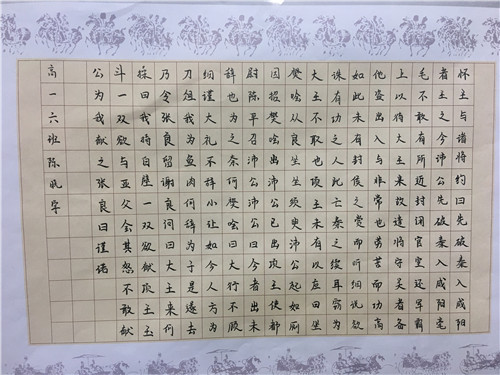 怀王与诸将约曰先破秦入咸阳
者王之今沛公先破秦入咸阳毫
毛不敢有所近封闭宫室还军霸
上以待大王来故遣将守关者备
他盗出入与非常也劳苦而功高
如此未有封侯之赏而听细说欲
诛有功之人此亡秦之续耳窃为
大王不取也项王未有以应曰坐
樊哙从良坐坐须臾沛公起如厕
因招樊哙出沛公已出项王使都
尉陈平召沛公沛公曰今者出未
辞也为之奈何樊哙曰大行不顾
细谨大礼不辞小让如今人方为
刀俎我为鱼肉何辞为于是遂去
乃令张良留谢良问曰大王来何
操曰我持白璧一双欲献项王玉
斗一双欲与亚父会其怒不敢献
公为我献之张良曰谨诺
高一六班陈